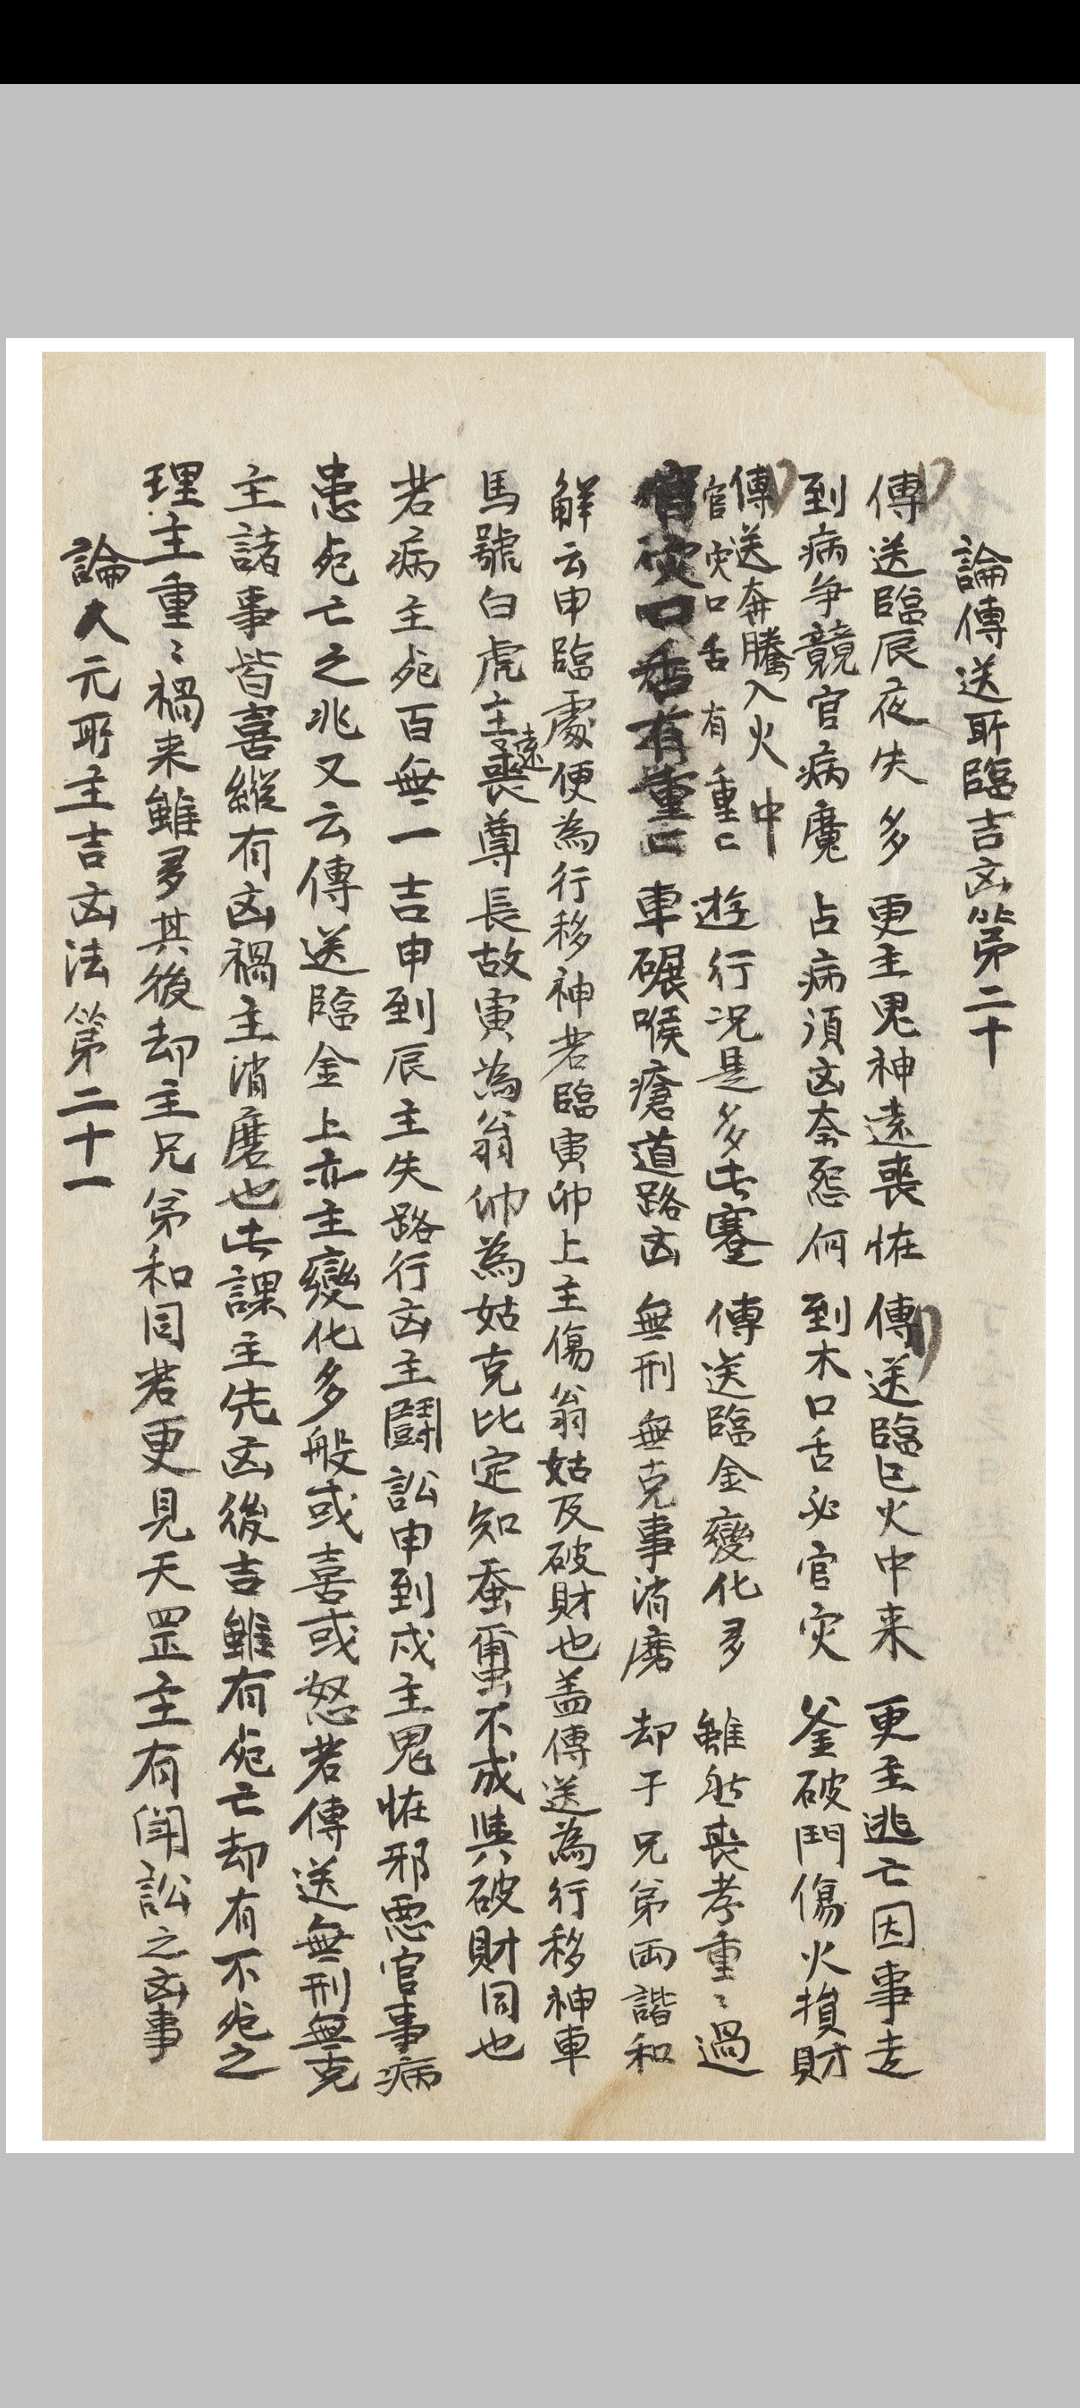 論傳送所臨吉凶第二十
傳送臨辰夜失多 更主鬼神遠喪恠 傳送臨巳火中来 更主逃亡因事走
到病争競官病魔 占病須凶奈怨何 到木口舌必官灾 釜破鬥傷火損財
傳送奔騰入火中
官灾口舌有重〻 遊行况是多屯蹇 傳送臨金變化多 雖然喪孝重〻過
官灾口舌有重〻 車碾喉瘡道路凶 無刑無克事消磨 却于兄弟両諧和
解云申臨處便為行移神若臨寅卯上主傷翁姑及破財也盖傳送為行移神車
馬號白虎主遠喪尊長故寅為翁卯為姑克比定知蚕蛮不成與破財同也
若病主死百無一吉申到辰主失路行凶主鬪訟申到戌主鬼恠邪悪官事病
患死亡之兆又云傳送臨金上亦主變化多般或喜或怒若傳送無刑無克
主諸事皆喜縱有凶禍主消磨也此課主先凶後吉雖有死亡却有不死之
理主重〻禍来雖多其後却主兄弟和同若更見天罡主有鬧訟之凶事
論大元所主吉凶法第二十一